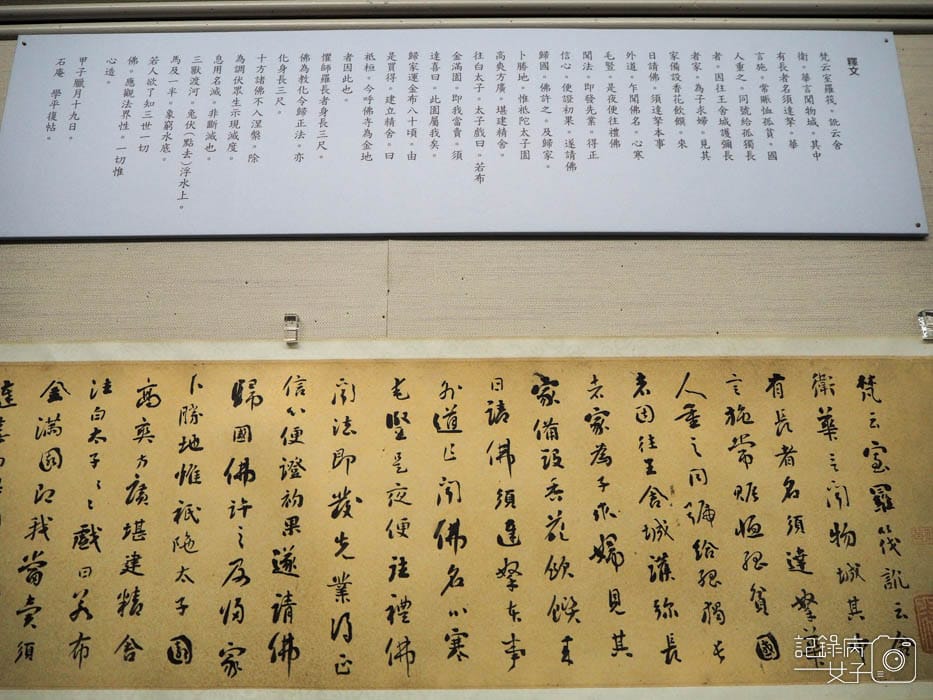 釋文
梵云室羅筏。訛云舍
衛。華言聞物城。其中
有長者名須達拏。華
言施。常賑恤孤貧。國
人重之。同號給孤獨長
者。因往王舍城護彌長
者家。為子求婦。見其
家備設香花飲饌。來
日請佛。須達拏本事
外道。乍聞佛名。心寒
毛豎。是夜便往禮佛
聞法。即發先業。得正
信心。便證初果。遂請佛
歸國。佛許之。及歸家。
卜勝地。惟祇陀太子園
高爽方廣。堪建精舍。
往白太子。太子戲曰。若布
金滿園。即我當賣。須
達喜曰。此園屬我矣。
歸家運金布八十頃。由
是買得。建立精舍。曰
祇桓。今呼佛寺為金地
者因此也。
懼師羅長者身長三尺。
佛為教化令歸正法。亦
化身長三尺。
十方諸佛不入涅槃。除
為調伏眾生示現滅度。
息用名滅。非斷滅也。
三獸渡河。兔伏(點去)浮水上。
馬及一半。象窮水底。
若人欲了知三世一切
佛。應觀法界性。一切惟
心造。
甲子臘月十九日。
石庵 學平復帖。
梵云室羅筏訛云舍
衛華言聞物城其中
有長者名須達拏華
言施常賑恤孤貧國
人重之同號給孤獨長
者因往王舍城護彌長
者家為子求婦見其
家備設香花飲饌來
日請佛須達拏本事
外道乍聞佛名心寒
毛豎是夜便往禮佛
聞法即發先業得正
信心便證初果遂請佛
歸國佛許之及歸家
卜勝地惟祇陀太子園
高爽方廣堪建精舍
往白太子々戲曰若布
金滿園即我當賣須
達喜曰
記錄病
女子